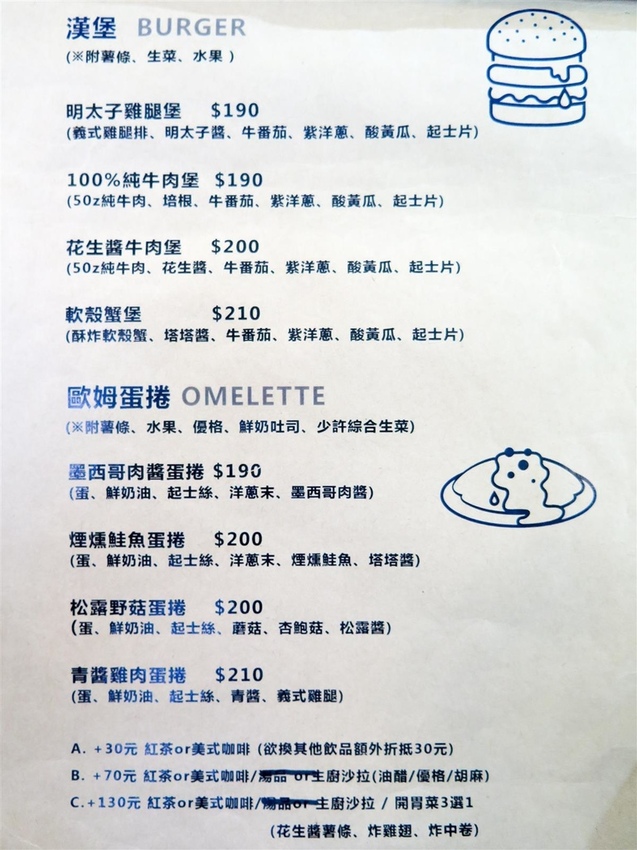 漢堡 BURGER
(※附薯條、生菜、水果 )
明太子雞腿堡 $190
(義式雞腿排、明太子醬、牛番茄、紫洋蔥、酸黃瓜、起士片)
100%純牛肉堡 $190
(50z純牛肉、培根、牛番茄、紫洋蔥、酸黃瓜、起士片)
花生醬牛肉堡 $200
(50z純牛肉、花生醬、牛番茄、紫洋蔥、酸黃瓜、起士片)
軟殼蟹堡 $210
(酥炸軟殼蟹、塔塔醬、牛番茄、紫洋蔥、酸黃瓜、起士片)
歐姆蛋捲 OMELETTE
(※附薯條、水果、優格、鮮奶吐司、少許綜合生菜)
墨西哥肉醬蛋捲 $190
(蛋、鮮奶油、起士絲、洋蔥末、墨西哥肉醬)
煙燻鮭魚蛋捲 $200
(蛋、鮮奶油、起士絲、洋蔥末、煙燻鮭魚、塔塔醬)
松露野菇蛋捲 $200
(蛋、鮮奶油、起士絲、蘑菇、杏鮑菇、松露醬)
青醬雞肉蛋捲 $210
(蛋、鮮奶油、起士絲、青醬、義式雞腿)
A. +30元 紅茶or美式咖啡 (欲換其他飲品額外折抵30元)
B. +70元 紅茶or美式咖啡/湯品 or生廚沙拉(油醋/優格/胡麻)
C.+130元 紅茶or美式咖啡/湯品or 主廚沙拉 / 開胃菜3選1
(花生醬薯條、炸雞翅、炸中卷)